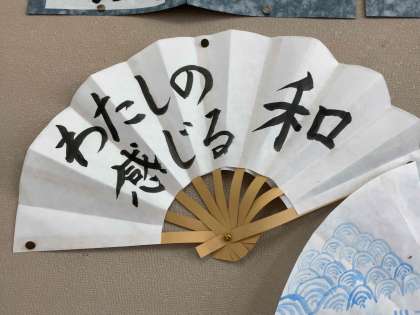 わたしの
感じる
和